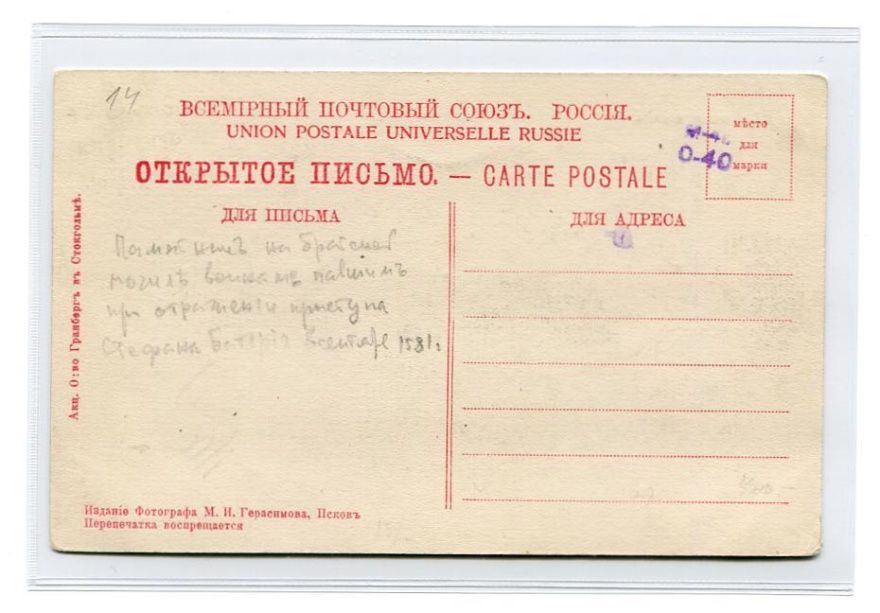 14
ВСЕМІРНЫЙ ПОЧТОВЫЙ СОЮЗЪ. РОССІЯ.
UNION POSTALE UNIVERSELLE RUSSIE
ОТКРЫТОЕ ПИСЬМО. — CARTE POSTALE
мѣсто
для
марки
0-40
ДЛЯ ПИСЬМА
ДЛЯ АДРЕСА
Памятникъ на братской
могилѣ воинамъ павшимъ
при отраженіи приступа
Стефана Баторія 1581г.
Акц. О:во Гранбергъ въ Стокгольмѣ.
Изданіе Фотографа М. И. Герасимова, Псковъ
Перепечатка воспрещается